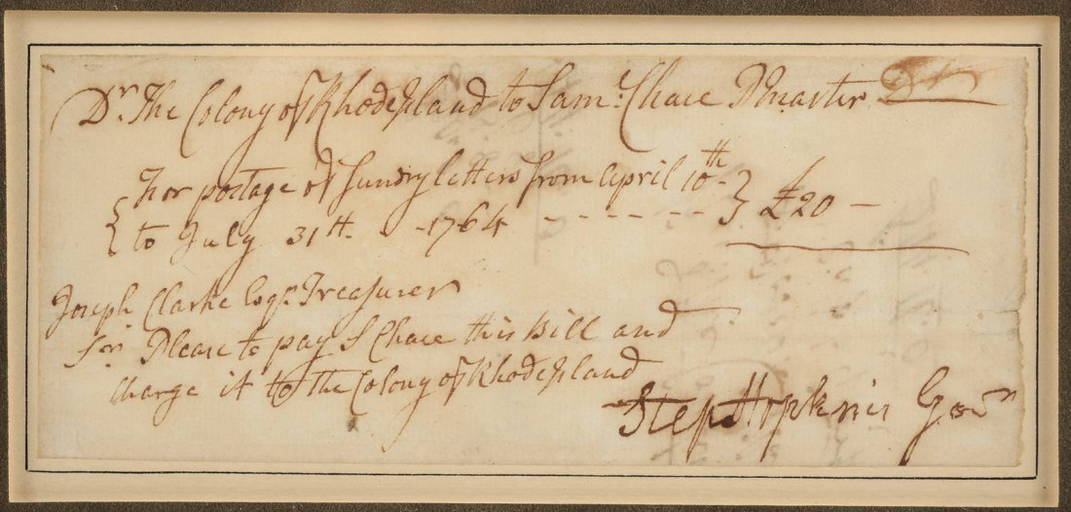 Dr. The Colony of Rhode Island to Sam:l Chace PMaster Dr
For postage of Sundry letters from April 10th - } £20 -
{ to July 31th - 1764 - - - - - - -
Joseph Clarke Esqr. Treasurer
Sr. Please to pay S Chace this Bill and
Charge it to the Colony of Rhode Island
Step Hopkins Govr